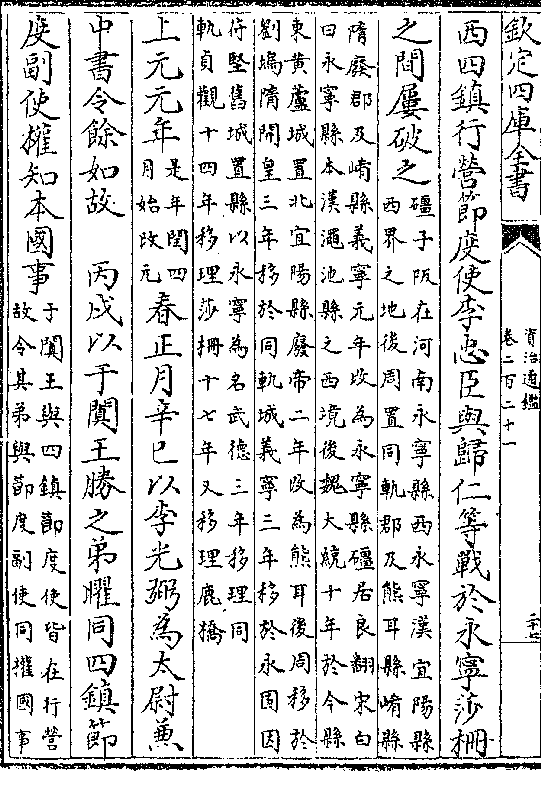 欽定四庫全書
資治通鑑
卷二百二十一
西四鎮行營節度使李忠臣與歸仁等戰於永寧莎柵
之間屢破之
礓子阪在河南永寧縣西永寧漢宜陽縣
西界之地後周置同軌郡及熊耳縣崤縣
隋廢郡及崤縣義寧元年改為永寧縣礓居良翻宋白
曰永寧縣本漢澠池縣之西境後魏大統十年於今縣
東黃蘆城置北宜陽縣廢帝二年改為熊耳後周移於
劉塢隋開皇三年移於同軌城義寧二年移於永固因
苻堅舊城置縣以永寧為名武德三年移理同
軌貞觀十四年移理莎柵十七年又移理鹿橋
上元元年
是年閏四
月始改元
春正月辛巳以李光弼為太尉兼
中書令餘如故　丙戌以于闐王勝之弟曜同四鎮節
度副使權知本國事
于闐王與四鎮節度使皆在行營
故令其弟與節度副使同權國事